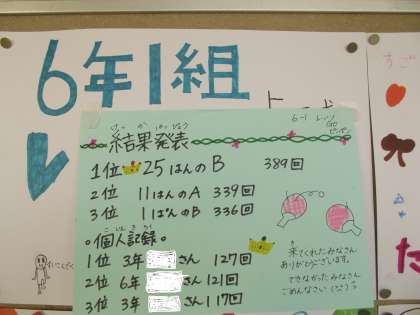 6年1組
けっ か はっぴょう
結果発表
6-1 レッツ
Go
ピンポン
1位 25はんのB 389回
2位 11はんのA 339回
3位 11はんのB 336回
。個人記録。
1位 3年 さん 127回
2位 6年 さん 121回
3位 3年 さん 117回
来てくれたみなさん
ありがとうございます。
できなかったみなさん
ごめんなさい
すご
た